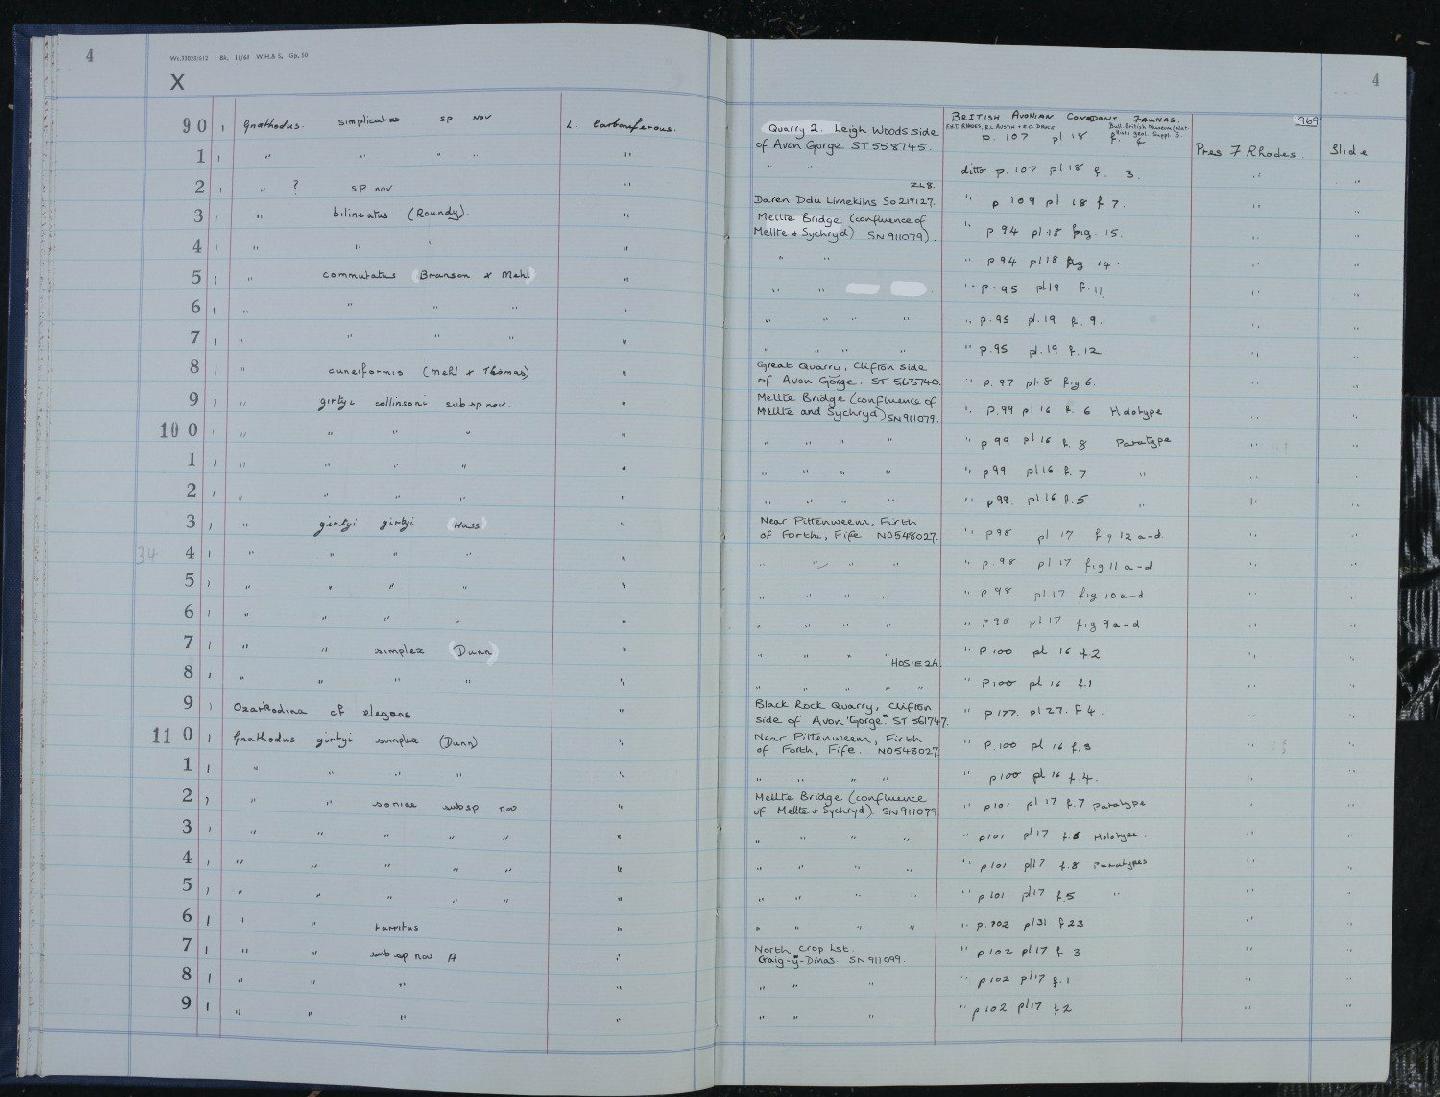 4
Wt.33028/612 Bk. 11/61 W.H.& S. Gp. 50
X
4
90 1 Gnathodus simplicatus sp nov L. Carboniferous. Quarry 2. Leigh Woods side of Avon Gorge ST 558745. BRITISH AVONIAN CONODONT FAUNAS. F.H.T. RHODES, R.L. AUSTIN & E.C. DRUCE Bull. British Museum (Nat. Hist) geol. Suppl. 5. p. 107 pl 18 f. 4 1969 Pres F Rhodes. Slide
1 1 " " " " " " " ditto p. 107 pl 18 f. 3. " "
2 1 " ? sp nov " ZL8. Daren Ddu Limekins SO 219127. " p 109 pl 18 f 7. " "
3 1 " bilineatus (Roundy). " Mellte Bridge (confluence of Mellte & Sychryd) SN 911079). " p 94 pl 18 fig. 15. " "
4 1 " " " " " " " p 94 pl 18 fig 14. " "
5 1 " commutatus (Branson & Mehl) " " " " p. 95 pl 19 f. 11 " "
6 1 " " " " " " " " " " p. 95 pl. 19 f. 9. " "
7 1 " " " " " " " " " " p. 95 pl. 19 f. 12 " "
8 1 " cuneiformis (Mehl & Thomas) " Great Quarry, Clifton side of Avon Gorge. ST 563740. " p. 97 pl. 8 fig 6. " "
9 1 " girtyi collinsoni subsp nov. " Mellte Bridge (confluence of Mellte and Sychryd) SN 911079. " p. 99 p 16 f. 6 Holotype " "
100 1 " " " " " " " " " " p 99 pl 16 f. 8 Paratype " "
1 1 " " " " " " " " " " p 99 pl 16 f. 7 " " "
2 1 " " " " " " " " " " p 99. pl 16 f. 5 " " "
3 1 " girtyi girtyi (Hass) " Near Pittenweem, Firth of Forth, Fife NO548027. " p 98 pl 17 fig 12 a-d. " "
34 4 1 " " " " " " " " " " p. 98 pl 17 fig 11 a-d " "
5 1 " " " " " " " " " " p 98 pl 17 fig 10 a-d " "
6 1 " " " " " " " " " " p 98 pl 17 fig 9 a-d " "
7 1 " " simplex (Dunn) " " " " " " p 100 pl 16 f. 2 " "
8 1 " " " " " HOSIE 2h. " " " " " " p 100 pl 16 f. 1 " "
9 1 Ozarkodina cf elegans " Black Rock Quarry, Clifton side of Avon Gorge. ST 561747. " p 177. pl 27. f 4. " "
110 1 Gnathodus girtyi simplex (Dunn) " Near Pittenweem, Firth of Forth, Fife. NO548027. " p. 100 pl 16 f. 3 " "
1 1 " " " " " " " " " " p 100 pl 16 f. 4. " "
2 1 " " soniae subsp nov " Mellte Bridge (confluence of Mellte & Sychryd). SN 911079 " p 101 pl 17 f. 7 Paratype " "
3 1 " " " " " " " " " " " p 101 pl 17 f. 6 Holotype. " "
4 1 " " " " " " " " " " " p 101 pl 17 f. 8 Paratypes " "
5 1 " " " " " " " " " " " p 101 pl 17 f. 5 " " "
6 1 " " turritus " " " " " " p. 102 pl 31 f 23 " "
7 1 " " subsp nov A " North Crop Lst. Craig-y-Dinas. SN 911099. " p 102 pl 17 f. 3 " "
8 1 " " " " " " " " p 102 pl 17 f. 1 " "
9 1 " " " " " " " " p 102 pl 17 f. 2 " "